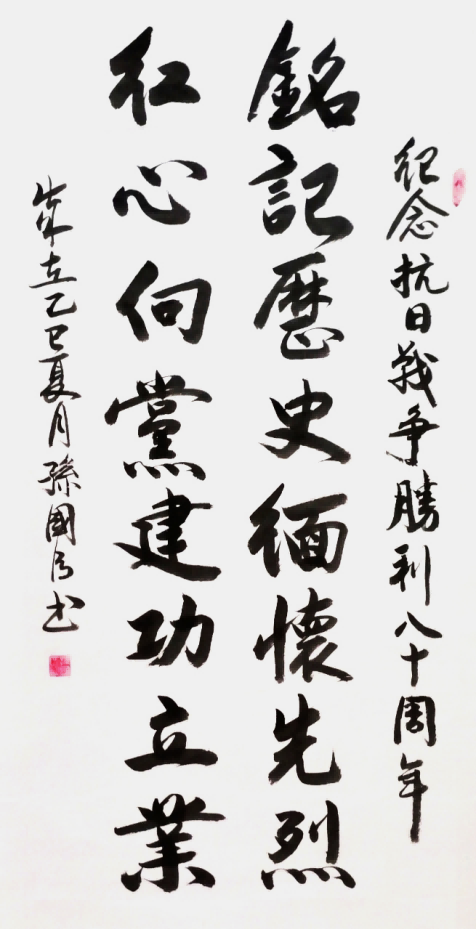 紀念抗日戰争勝利八十周年
銘記歷史緬懷先烈
紅心向黨建功立業
歲在乙巳夏月孫國 书